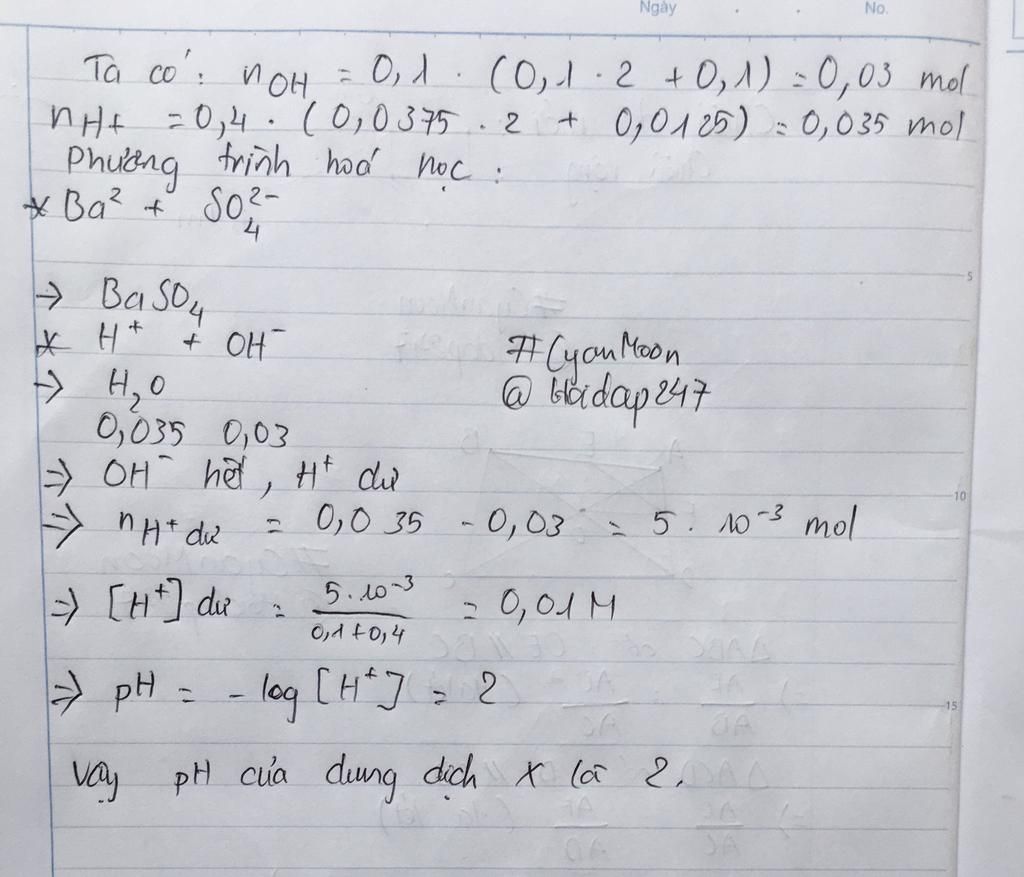 Ngày . . No.
Ta có: nOH = 0,1 . (0,1 . 2 + 0,1) = 0,03 mol
nH+ = 0,4 . (0,0375 . 2 + 0,0125) = 0,035 mol
phương trình hoá học :
* Ba² + SO₄²⁻
5
→ BaSO₄
* H⁺ + OH⁻
#CyanMoon
→ H₂O
@Hoidap247
0,035 0,03
⇒ OH⁻ hết, H⁺ dư
10
⇒ nH⁺ dư = 0,035 - 0,03 = 5 . 10⁻³ mol
⇒ [H⁺] dư = 5.10⁻³ / 0,1+0,4 = 0,01M
⇒ pH = - log [H⁺] = 2
15
Vậy pH của dung dịch X là 2.